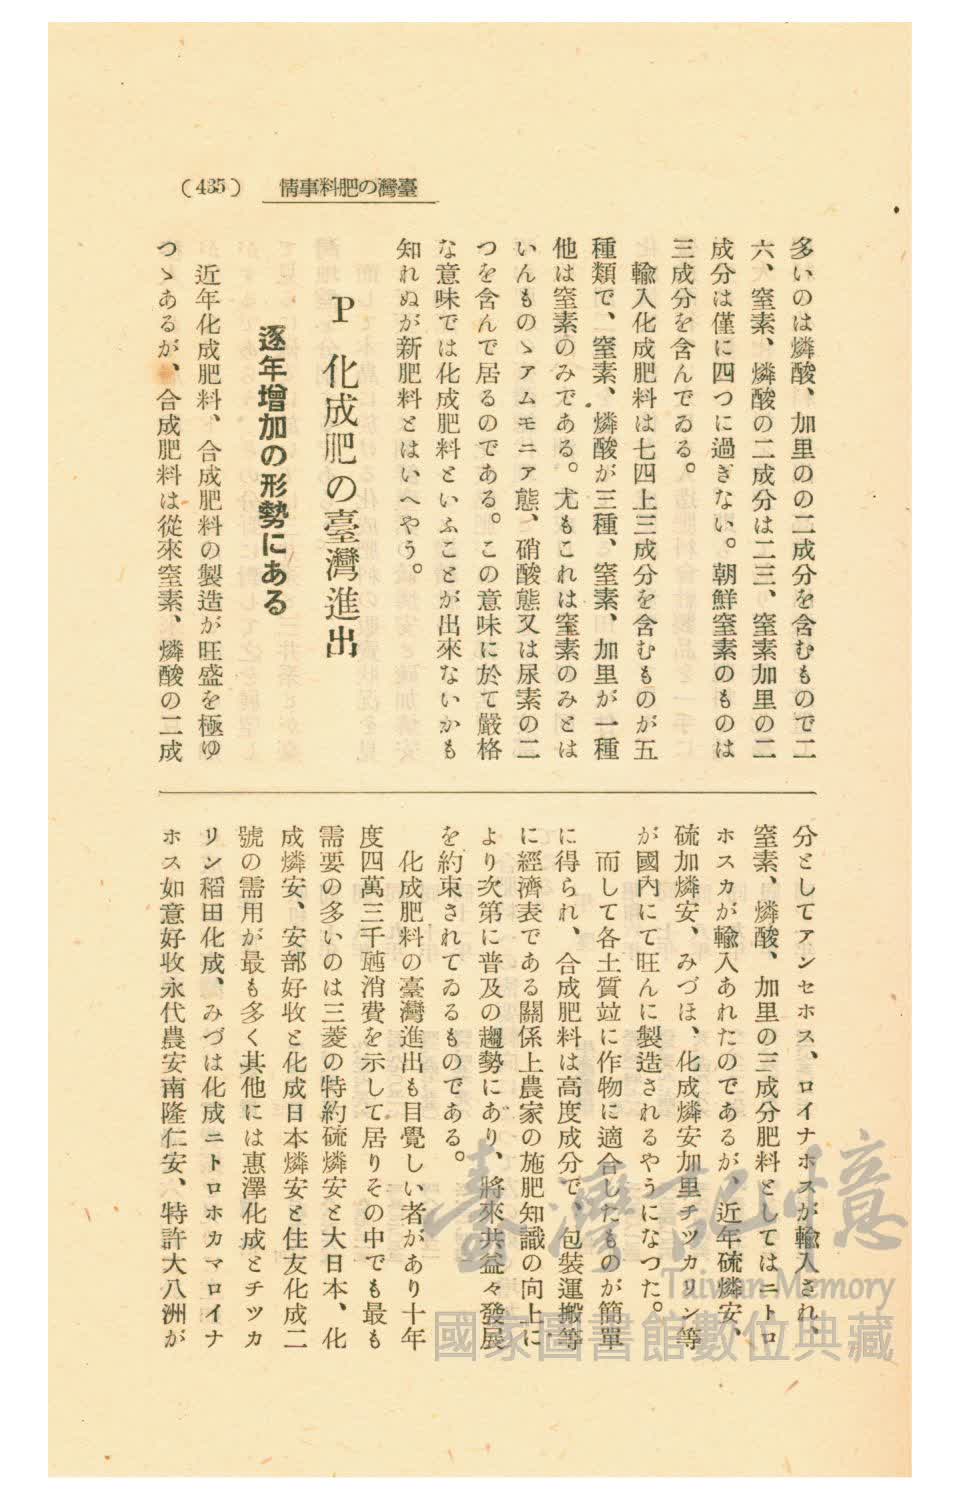 (435) 情事料肥の灣臺
多いのは燐酸、加里のの二成分を含むもので二
六、窒素、燐酸の二成分は二三、窒素加里の二
成分は僅に四つに過ぎない。朝鮮窒素のものは
三成分を含んでゐる。
輸入化成肥料は七四上三成分を含むものが五
種類で、窒素、燐酸が三種、窒素、加里が一種
他は窒素のみである。尤もこれは窒素のみとは
いんものゝアムモニア態、硝酸態又は尿素の二
つを含んで居るのである。この意味に於て嚴格
な意味では化成肥料といふことが出來ないかも
知れぬが新肥料とはいへやう。
P 化成肥の臺灣進出
逐年增加の形勢にある
近年化成肥料、合成肥料の製造が旺盛を極ゆ
つゝあるが、合成肥料は從來窒素、燐酸の二成
分としてアンセホス、ロイナホスが輸入され、
窒素、燐酸、加里の三成分肥料としてはニトロ
ホスカが輸入あれたのであるが、近年硫燐安、
硫加燐安、みづほ、化成燐安加里チツカリン等
が國內にて旺んに製造されるやうになつた。
而して各土質竝に作物に適合したものが簡單
に得られ、合成肥料は高度成分で、包裝運搬等
に經濟表である關係上農家の施肥知識の向上に
より次第に普及の趨勢にあり、將來共益々發展
を約束されてゐるものである。
化成肥料の臺灣進出も目覺しい者があり十年
度四萬三千瓲消費を示して居りその中でも最も
需要の多いのは三菱の特約硫燐安と大日本、化
成燐安、安部好收と化成日本燐安と住友化成二
號の需用が最も多く其他には惠澤化成とチツカ
リン稻田化成、みづは化成ニトロホカマロイナ
ホス如意好收永代農安南隆仁安、特許大八洲が
臺灣記憶
Taiwan Memory
國家圖書館數位典藏